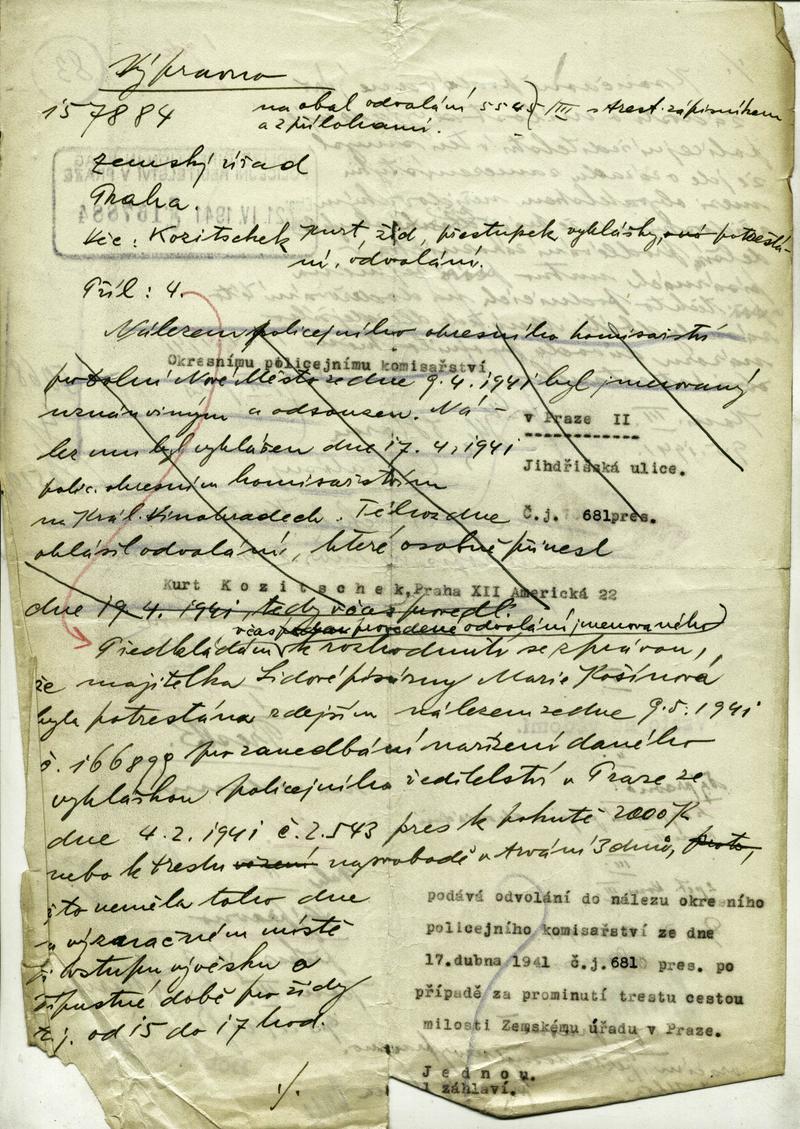 Výpravna
157884
na obal odvolání 5545/III s trest. zápisníkem
a 2 přílohami.
Zemský úřad
Praha.
Věc: Kozitschek Kurt, žid, přestupek vyhlášky, potrestá-
ní, odvolání.
Příl: 4.
Nálezem policejního okresního komisařství
Okresnímu policejnímu komisařství
pro dolní Nové Město ze dne 9.4.1941 byl jmenovaný
uznán viným a odsouzen. Ná-
v Praze II
lez mu byl vyhlášen dne 17.4.1941
Jihdřišská ulice.
polic. okresním komisařstvím
na Král. Vinohradech. Téhož dne
Č.j. 681pres.
ohlásil odvolání, které osobně přinesl
Kurt Kozitschek, Praha XII Americká 22
dne 19.4.1941, tedy včas provedl.
včas provedené odvolání jmenovaného
Předkládám k rozhodnutí se zprávou,
že majitelka Lidové písárny Marie Košinová
byla potrestána zdejším nálezem ze dne 9.5.1941
č. 166899 pro zanedbání nařízení daného
vyhláškou policejního ředitelství v Praze ze
dne 4.2.1941 č.2.543 pres k pokutě 2000 K
nebo k trestu vězení na svobodě v trvání 3 dnů, proto,
že neměla toho dne
výrazném místě
vstupu vývěsku o
přípustné době pro židy
t.j. od 15 do 17 hod.
./.
podává odvolání do nálezu okresního
policejního komisařství ze dne
17.dubna 1941 č.j.681 pres. po
případě za prominutí trestu cestou
milosti Zemskému úřadu v Praze.
Jednou.
1 záhlaví.